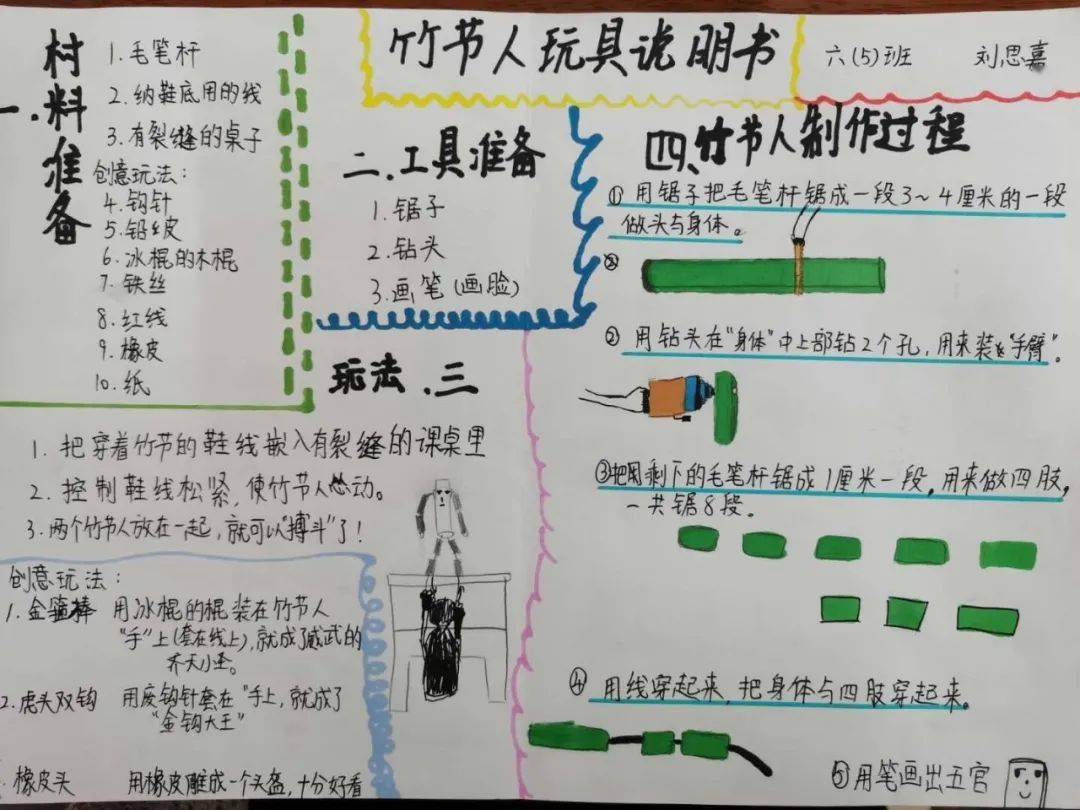 竹节人玩具说明书
六(5)班 刘思嘉
一.材料准备
1.毛笔杆
2.纳鞋底用的线
3.有裂缝的桌子
创意玩法:
4.钩针
5.铅皮
6.冰棍的木棍
7.铁丝
8.红线
9.橡皮
10.纸
二.工具准备
1.锯子
2.钻头
3.画笔(画脸)
玩法.三
1.把穿着竹节的鞋线嵌入有裂缝的课桌里
2.控制鞋线松紧,使竹节人动。
3.两个竹节人放在一起,就可以"搏斗"了!
创意玩法:
1.金箍棒 用冰棍的棍装在竹节人
"手"上(套在线上),就成了威武的
齐天小圣。
2.虎头双钩 用废钩针套在"手上,就成了
"金钩大王"
橡皮头 用橡皮雕成一个头盔,十分好看
四、竹节人制作过程
①用锯子把毛笔杆锯成一段3~4厘米的一段
做头与身体。
②用钻头在"身体"中上部钻2个孔,用来装"手臂".
③把剩下的毛笔杆锯成1厘米一段,用来做四肢,
一共锯8段.
④用线穿起来,把身体与四肢穿起来。
⑤用笔画出五官